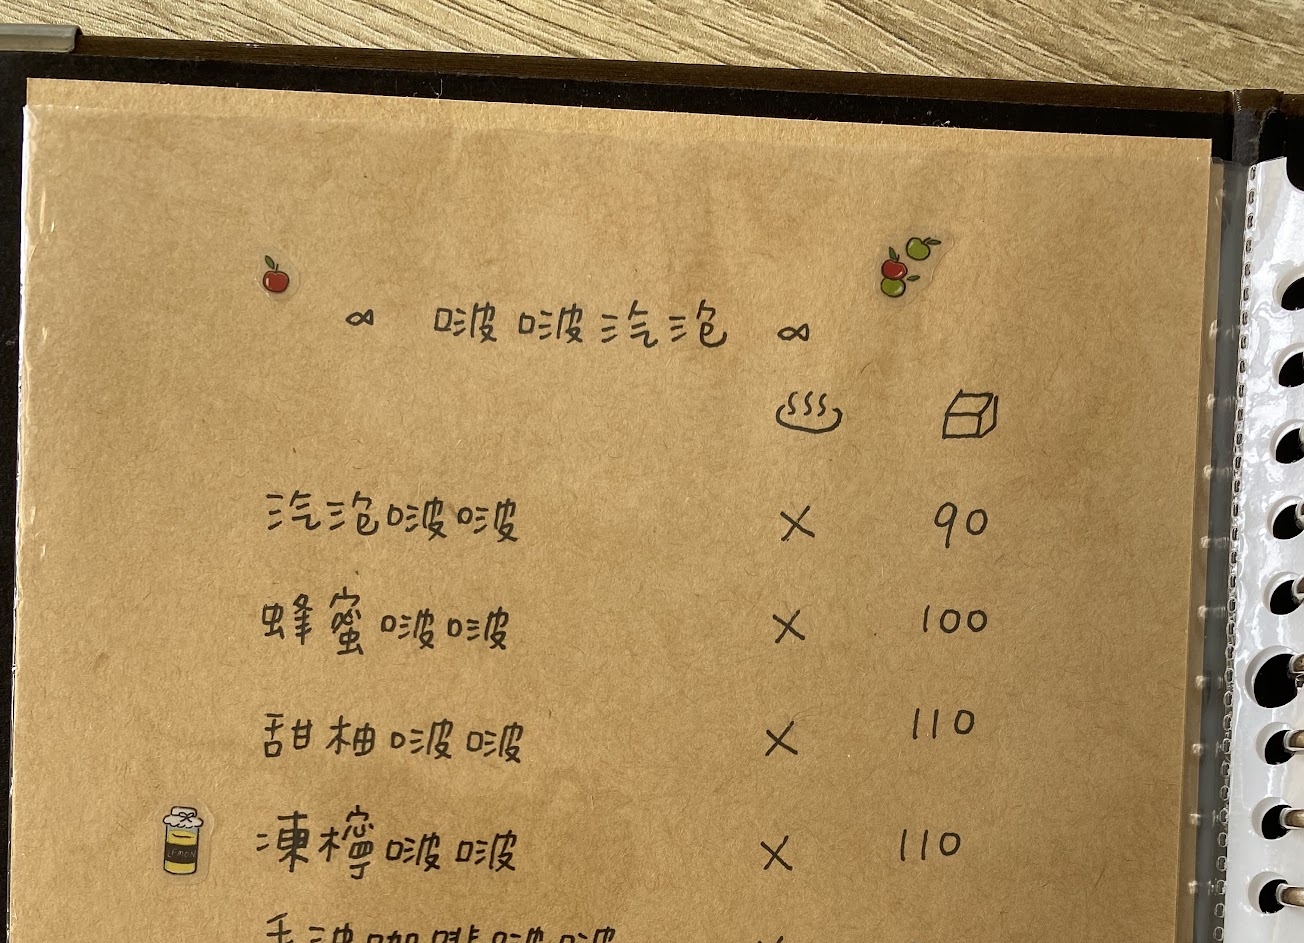 ∞ 啵啵汽泡 ∞
汽泡啵啵 X 90
蜂蜜啵啵 X 100
甜柚啵啵 X 110
LEMON
凍檸啵啵 X 110
手沖咖啡啵啵 X